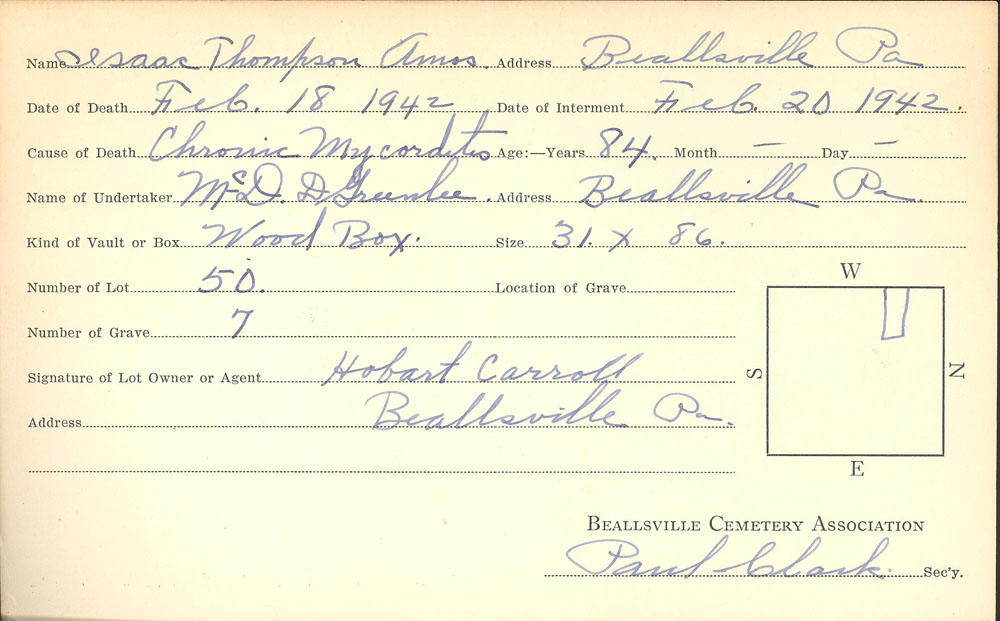 Name Isaac Thompson Amos. Address Beallsville Pa
Date of Death Feb. 18 1942 Date of Interment Feb. 20 1942.
Cause of Death Chronic Mycorditis Age:—Years 84. Month — Day —
Name of Undertaker McD. D Greenlee. Address Beallsville Pa.
Kind of Vault or Box Wood Box. Size 31. X 86.
Number of Lot 50. Location of Grave
Number of Grave 7
Signature of Lot Owner or Agent Hobart Carroll
Address Beallsville Pa.
W
S N
E
BEALLSVILLE CEMETERY ASSOCIATION
Paul Clark. Sec'y.